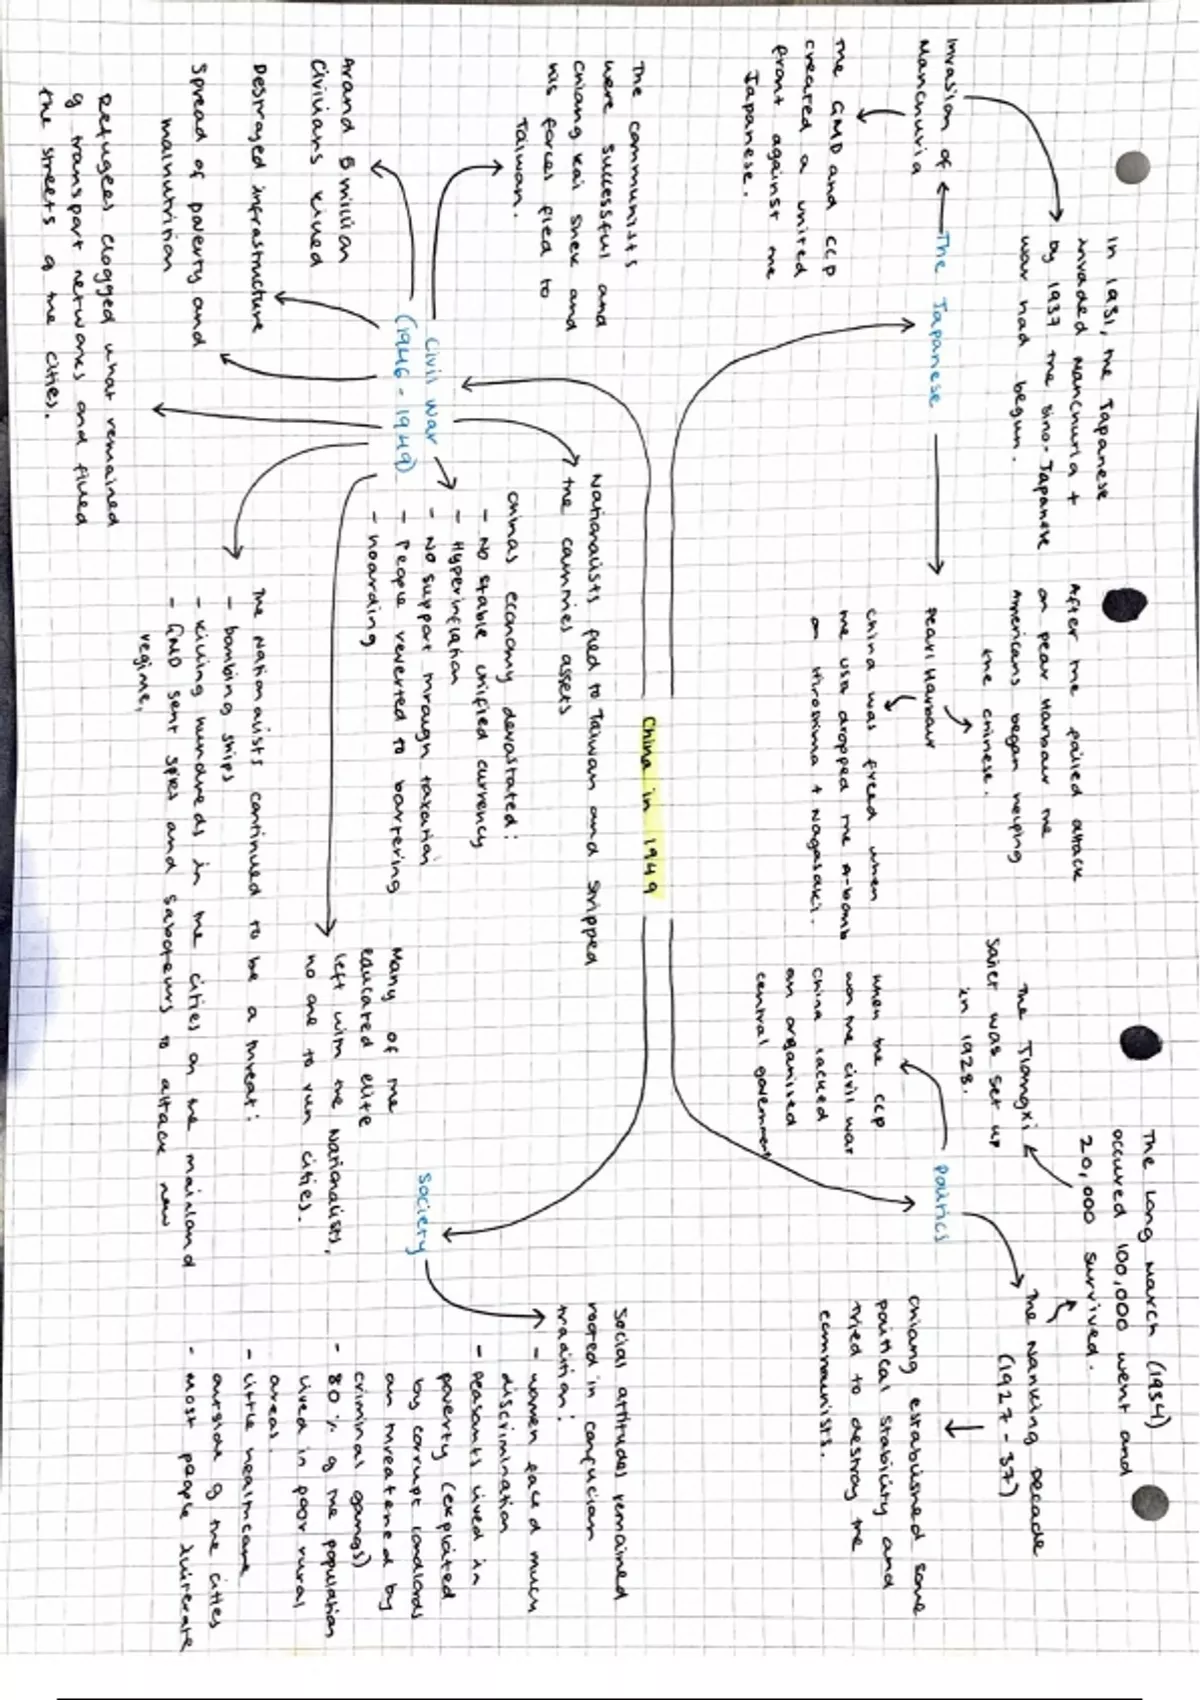 China in 1949
The Japanese
Invasion of
Manchuria
In 1931, the Japanese
invaded Manchuria +
by 1937 the Sino-Japanese
war had begun.
The GMD and CCP
created a united
front against the
Japanese.
Pearl Harbour
After the failed attack
on pearl Harbour the
Americans began helping
the Chinese.
China was freed when
the USA dropped the A-bomb
on Hiroshima + Nagasaki.
Politics
The Nanking Decade
(1927-37)
The Long March (1934)
occured 100,000 went and
20,000 survived.
The Jiangxi
Soviet was set up
in 1928.
When the CCP
won the civil war
China lacked
an organised
central government
Chiang established some
political stability and
tried to destroy the
communists.
Civil War
(1946-1949)
The communists
were successful and
Chiang Kai Shek and
his forces fled to
Taiwan.
Around 5 million
Civilians killed
Destroyed infrastructure
Spread of poverty and
malnutrition
Refugees clogged what remained
of transport networks and filled
the streets of the cities.
Nationalists fled to Taiwan and stripped
the countries assets
Chinas economy devastated:
- No stable unified currency
- Hyperinflation
- No support through taxation
- People reverted to bartering
- hoarding
Many of the
educated elite
left with the Nationalists,
no one to run cities.
The Nationalists continued to be a threat:
- bombing ships
- killing hundreds in the cities on the mainland
- GMD sent spies and saboteurs to attack new
regime,
Society
Social attitudes remained
rooted in confucian
tradition:
- women faced much
discrimination
- peasants lived in
poverty (exploited
by corrupt landlords
an threatened by
criminal gangs)
- 80% of the population
lived in poor rural
areas.
- little healthcare
outside of the cities
- most people illiterate